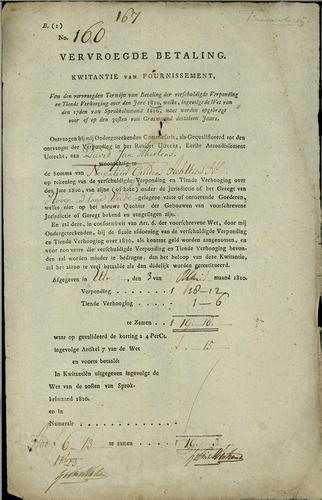 167
B. (1)
No. 160
VERVROEGDE BETALING.
KWITANTIE VAN FOURNISSEMENT,
Van den vervroegden Termijn van Betaling der verschuldigde Verponding
en Tiende Verhooging over den Jare 1810, welke, ingevolge de Wet van
den 17den van Sprokkelmaand 1810, moet worden opgebragt
voor of op den 30sten van Grasmaand deszelven Jaars.
Ontvangen bij mij Ondergeteekenden Commissaris, als Gequalificeerd tot den
ontvangst der Verponding in het Ressort Utrecht, Eerste Arrondissement
Utrecht, van Jacob Jan
woonachtig
de Somma van
op rekening van de verschuldigde Verponding en Tiende Verhooging over
den Jare 1810, van zijne (of hare) onder de Jurisdictie of het Geregt van
gelegene vaste of onroerende Goederen,
welke niet op het nieuwe Quohier der Gebouwen van voorschreven
Jurisdictie of Geregt bekend en aangeslagen zijn.
En zal deze, in conformiteit van Art. 6. der voorschrevene Wet, door mij
Ondergeteekenden, bij de finale afdoening van de verschuldigde Verponding
en Tiende Verhooging over 1810, als kontant geld worden aangenomen, en
voor zoo verre die verschuldigde Verponding en Tiende Verhooging bevon-
den zal worden minder te bedragen, dan het beloop van deze Kwitantie,
zal het zelve te veel betaalde als dan dadelijk worden gerestitueerd.
Afgegeven in den 3 van 1810.
Verponding 18-12
Tiende Verhooging 1-6
te Zamen
waar op gevalideerd de korting a 4 PerCt.
ingevolge Artikel 7 van de Wet 15
en voorts betaald:
In Kwitantiën uitgegeven ingevolge de
Wet van de 20sten van Sprok-
kelmaand 1810.
en in
Numerair
6-13 te zamen